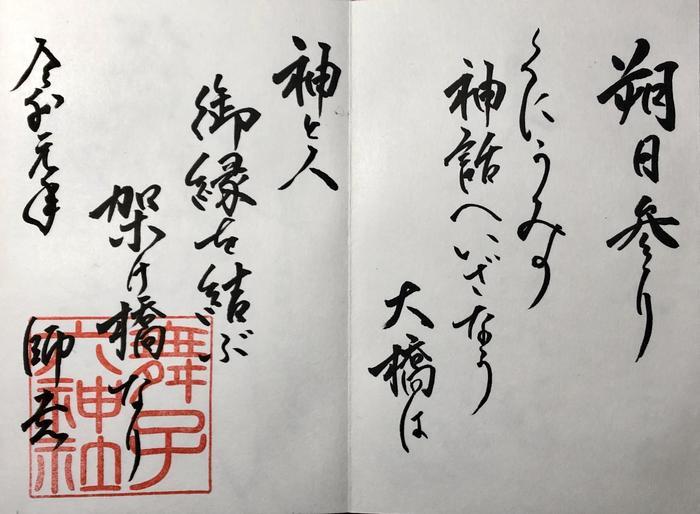 朔日参り
くにうみの
神話へいざなう
大橋は
神と人
御縁を結ぶ
架け橋なり
令和元年
師走
舞子
六神社